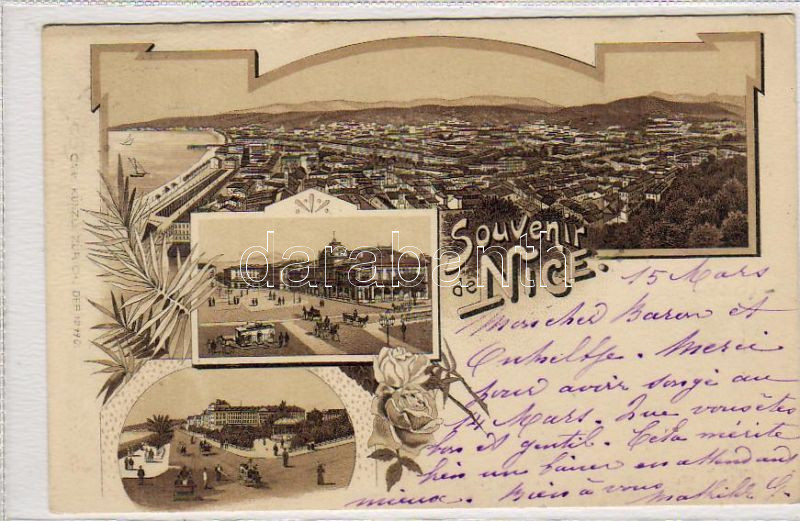 Souvenir
de NICE.
darabanth
CARL KÜNZLI, ZÜRICH. DEP.
15 Mars
Mon cher Baron et
Merci
pour avoir songé au
14 Mars. Que vous êtes
bon et gentil. Cela mérite
bien un baiser en attendant
mieux. Bien à vous Mathilde G.